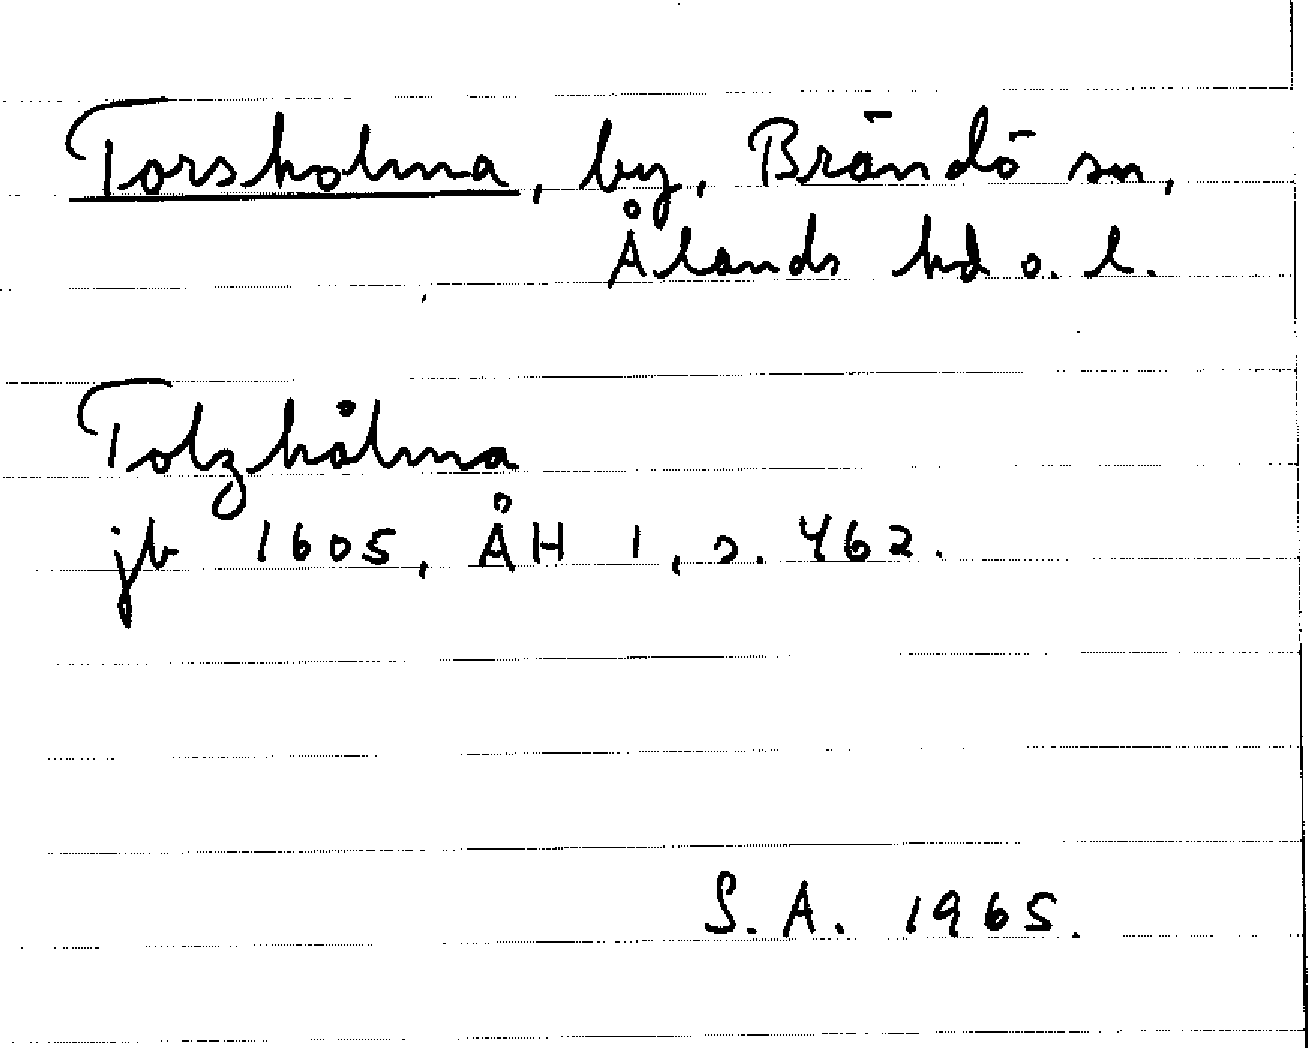 Torsholma, by, Brändö sn,
Ålands hd o. l.
Tolzhålma
jb 1605, ÅH 1, s. 462.
S. A. 1965.